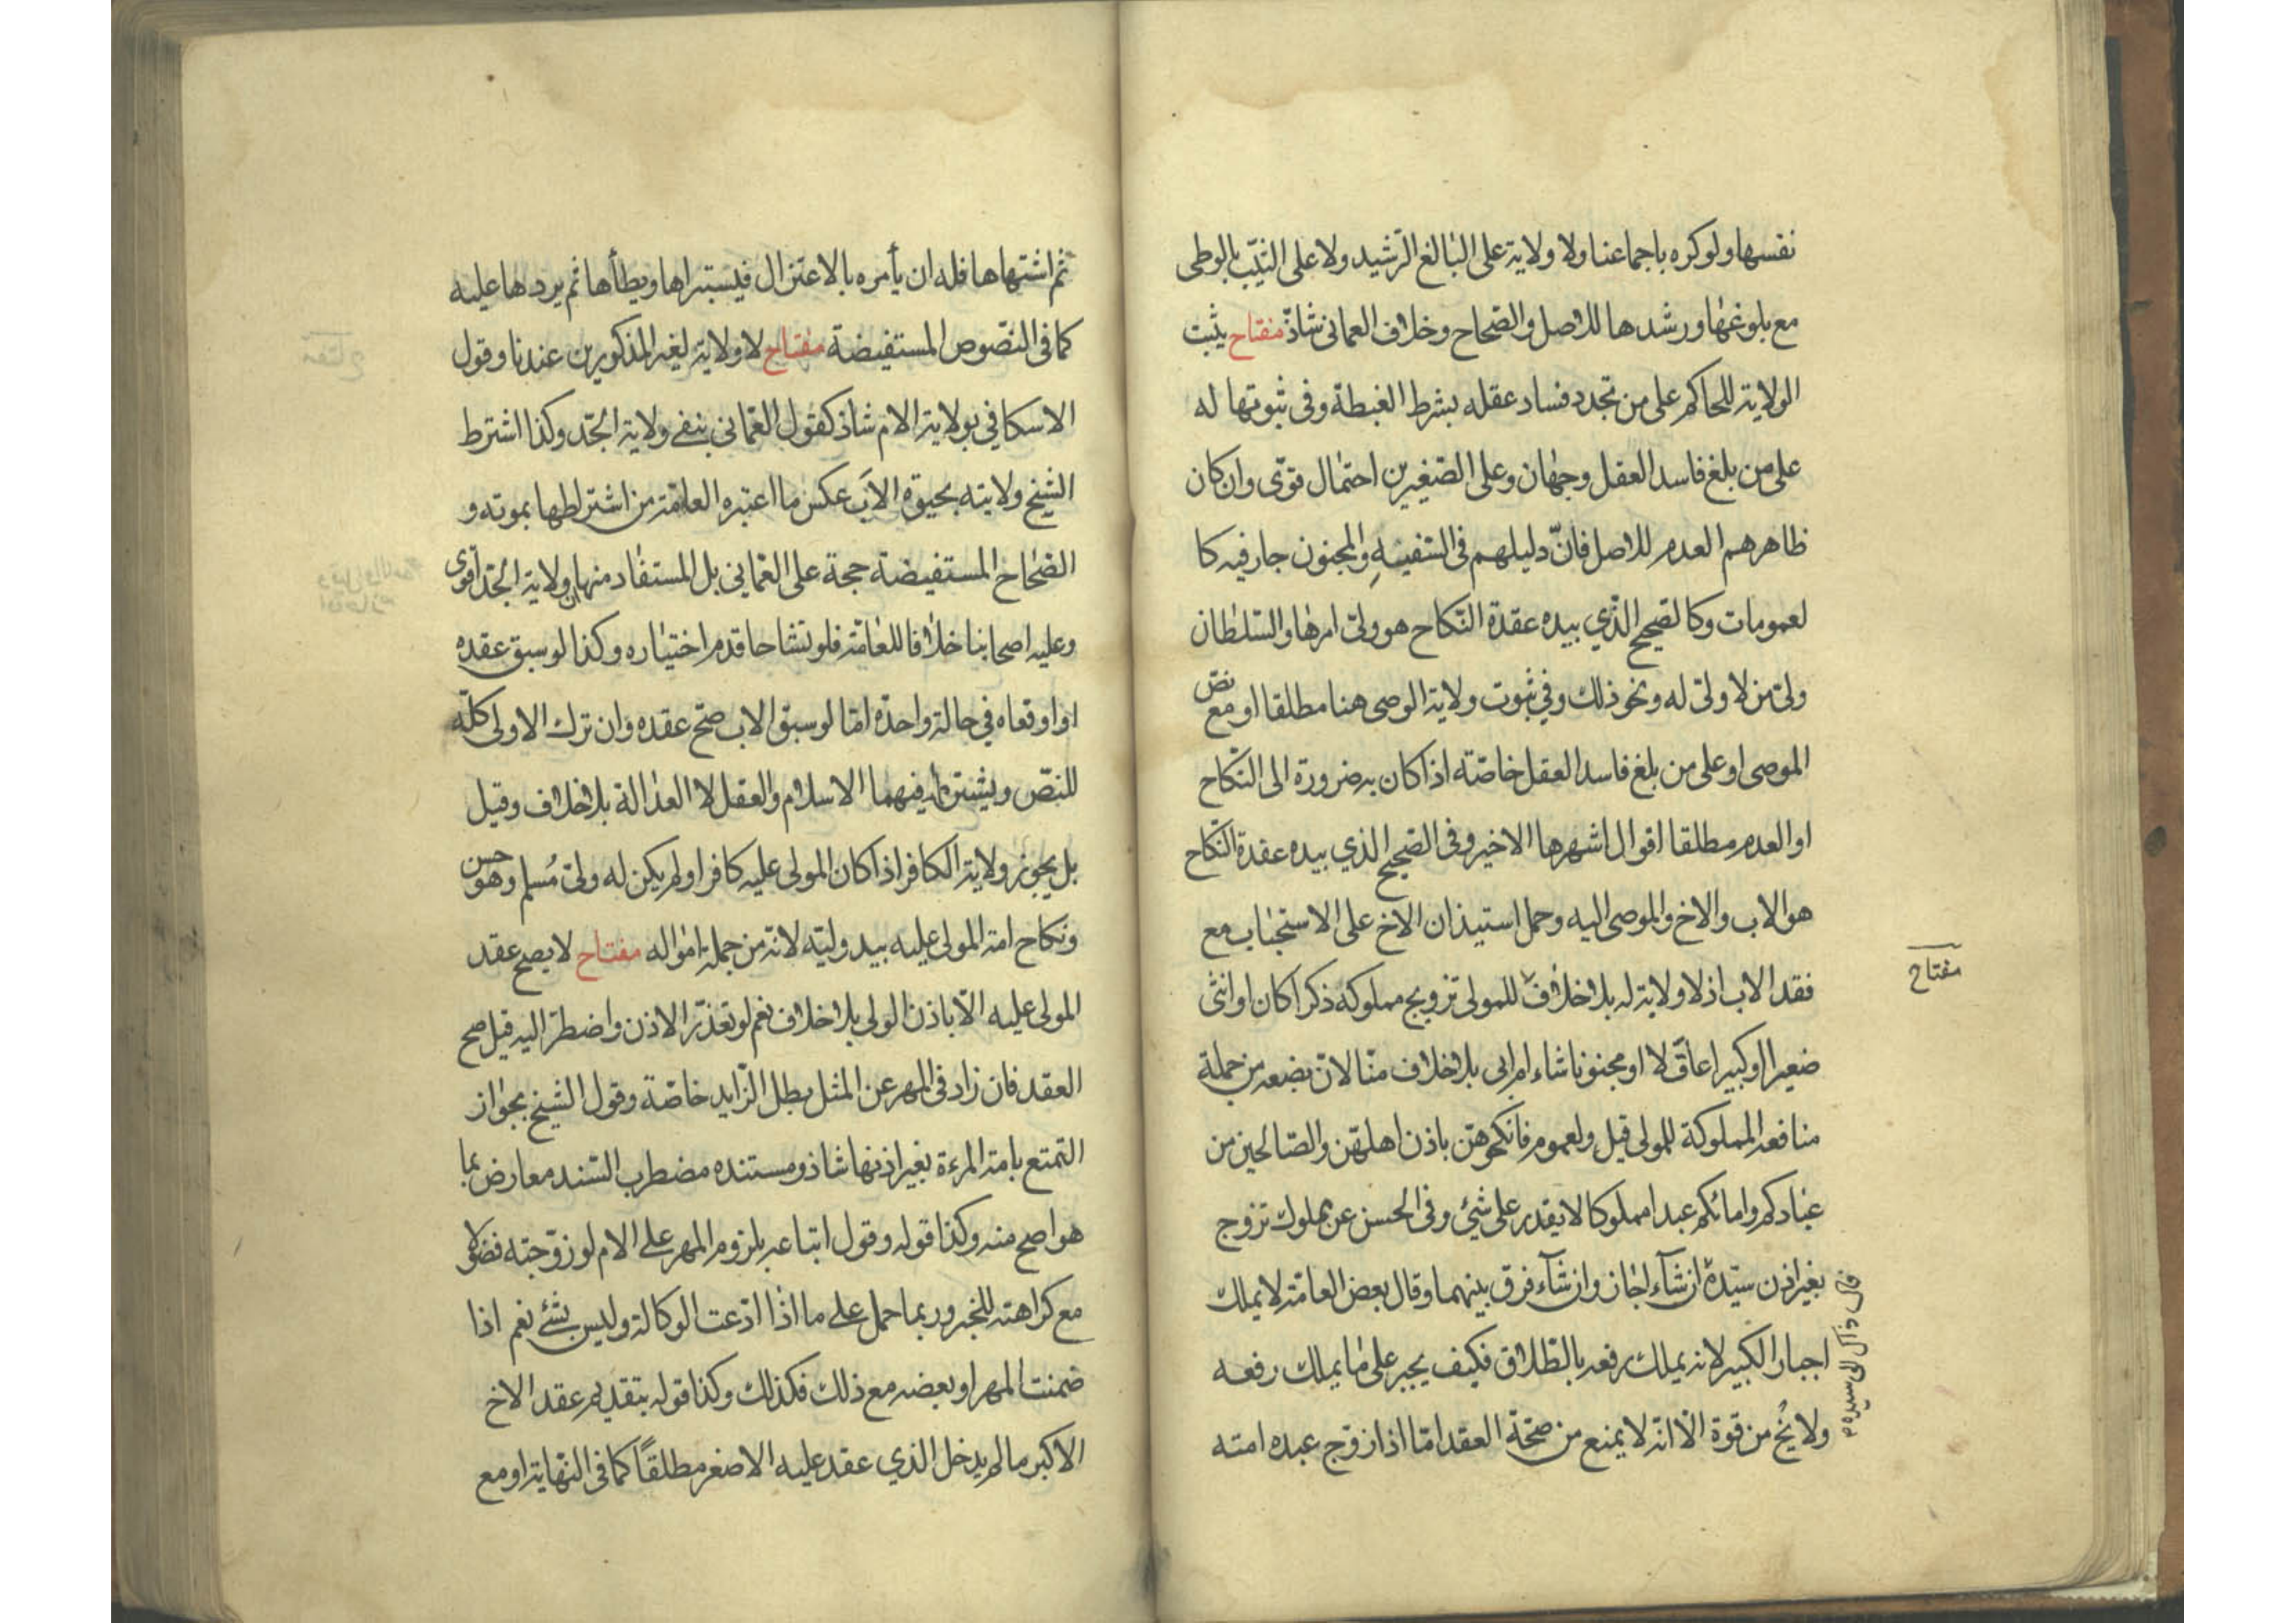 نفسها ولو كره باجماعنا ولا ولاية على البالغ الرّشيد ولا على الثيّب بالوطى
مع بلوغها ورشدها للاصل والصّحاح وخلاف العمانى شاذّ مفتاح يثبت
الولاية للحاكم على من تجدد فساد عقله بشرط الغبطة وفى ثبوتها له
على من بلغ فاسد العقل وجهان وعلى الصّغيرين احتمال قوّى وان كان
ظاهرهم العدم للاصل فانّ دليلهم فى السّفيه والمجنون جار فيه كا
لعمومات وكالصّحيح الّذي بيده عقدة النّكاح هو ولىّ امرها والسّلطان
ولىّ من لا ولىّ له ونحو ذلك وفي ثبوت ولاية الوصى هنا مطلقا او مع نصّ
الموصى او على من بلغ فاسد العقل خاصّة اذا كان به ضرورة الى النّكاح
او العدم مطلقا اقوال اشهرها الاخير وفى الصّحيح الذي بيده عقدة النّكاح
هو الاب والاخ والموصى اليه وحمل استيذان الاخ على الاستحباب مع
فقد الاب اذ لا ولاية له بلا خلاف للمولى تزويج مملوكه ذكرا كان او انثى
صغيرا او كبيرا عاقلا او مجنونا شاء ام ابى بلا خلاف منّا لانّ بضعه من جملة
منافعه المملوكة للمولى قيل ولعموم فانكحوهنّ باذن اهلهنّ والصّالحين من
عبادكم وامائكم عبدا مملوكا لا يقدر على شيئ وفى الحسن عن مملوك تزوج
بغير اذن سيّده ان شآء اجاز وان شآء فرق بينهما وقال بعض العامّة لا يملك
اجبار الكبير لانه يملك رفعه بالطّلاق فكيف يجبر على ما يملك رفعه
ولا يخ من قوة الّا انّه لا يمنع من صحّة العقد امّا اذا زوّج عبده امته
مفتاح
قال ذاك الى سيده
ثم اشتهاها فله ان يأمره بالاعتزال فيستبراها ويطأها ثم يردها عليه
كما فى النّصوص المستفيضة مفتاح لا ولاية لغير المذكورين عندنا وقول
الاسكافي بولاية الام شاذ كقول العمّانى بنفى ولاية الجدّ وكذا اشترط
الشيخ ولايته بحيوة الاب عكس ما اعتبره العامّة من اشتراطها بموته و
الصّحاح المستفيضة حجة على العمّاني بل المستفاد منها ان ولاية الجدّ اقوى
وعليه اصحابنا خلافا للعامّة فلو تشاحا قدم اختياره وكذا لو سبق عقده
او اوقعاه في حالة واحدة امّا لو سبق الاب صحّ عقده وان ترك الاولى كلّه
للنّص ويشترط فيهما الاسلام والعقل لا العدالة بلا خلاف وقيل
بل يجوز ولاية الكافر اذا كان المولى عليه كافرا ولم يكن له ولىّ مُسلم وهو حسن
ونكاح امة المولى عليه بيد وليّه لانّه من جملة امواله مفتاح لا يصح عقد
المولى عليه الّا باذن الولى بلا خلاف نعم لو تعذّر الاذن واضطرّ اليه قيل صح
العقد فان زاد فى المهر عن المثل بطل الزّايد خاصّة وقول الشيخ بجواز
التمتع بامة المرءة بغير اذنها شاذ ومستنده مضطرب السّند معارض بما
هو اصح منه وكذا قوله وقول اتباعه بلزوم المهر على الام لو زوّجته فضولا
مع كراهته للخبر وربما حمل على ما اذا ادّعت الوكالة وليس بشئ نعم اذا
ضمنت المهر او بعضه مع ذلك فكذلك وكذا قوله بتقديم عقد الاخ
الاكبر ما لم يدخل الذي عقد عليه الاصغر مطلقاً كما فى النّهاية او مع